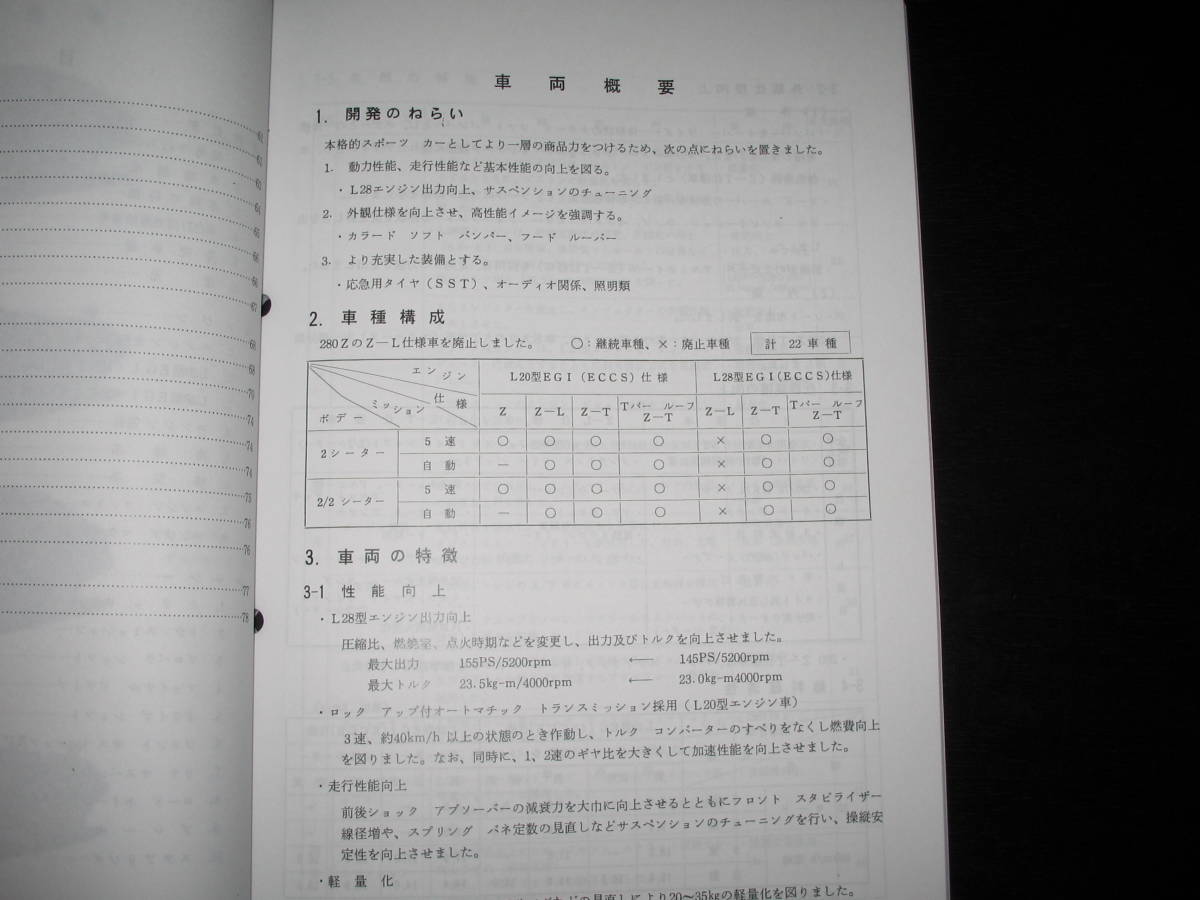 61
61
63
64
65
66
66
67
68
68
70
74
74
74
75
76
76
77
78
車両概要
1. 開発のねらい
本格的スポーツ カーとしてより一層の商品力をつけるため、次の点にねらいを置きました。
1. 動力性能、走行性能など基本性能の向上を図る。
・L28エンジン出力向上、サスペンションのチューニング
2. 外観仕様を向上させ、高性能イメージを強調する。
・カラード ソフト バンパー、フード ルーバー
3. より充実した装備とする。
・応急用タイヤ(SST)、オーディオ関係、照明類
2. 車種構成
280ZのZ―L仕様車を廃止しました。 ○:継続車種、×:廃止車種 計 22 車種
エンジン L20型EGI(ECCS)仕様 L28型EGI(ECCS)仕様
ボデー ミッション 仕様 Z Z―L Z―T Tバー ルーフ Z―T Z―L Z―T Tバー ルーフ Z―T
2シーター 5速 ○ ○ ○ ○ × ○ ○
自動 ― ○ ○ ○ × ○ ○
2/2 シーター 5速 ○ ○ ○ ○ × ○ ○
自動 ― ○ ○ ○ × ○ ○
3. 車両の特徴
3-1 性能向上
・L28型エンジン出力向上
圧縮比、燃焼室、点火時期などを変更し、出力及びトルクを向上させました。
最大出力 155PS/5200rpm ← 145PS/5200rpm
最大トルク 23.5kg-m/4000rpm ← 23.0kg-m4000rpm
・ロック アップ付オートマチック トランスミッション採用(L20型エンジン車)
3速、約40km/h 以上の状態のとき作動し、トルク コンバーターのすべりをなくし燃費向上
を図りました。なお、同時に、1、2速のギヤ比を大きくして加速性能を向上させました。
・走行性能向上
前後ショック アブソーバーの減衰力を大巾に向上させるとともにフロント スタビライザー
線径増や、スプリング バネ定数の見直しなどサスペンションのチューニングを行い、操縦安
定性を向上させました。
・軽量化
などの見直しにより20～35kgの軽量化を図りました。